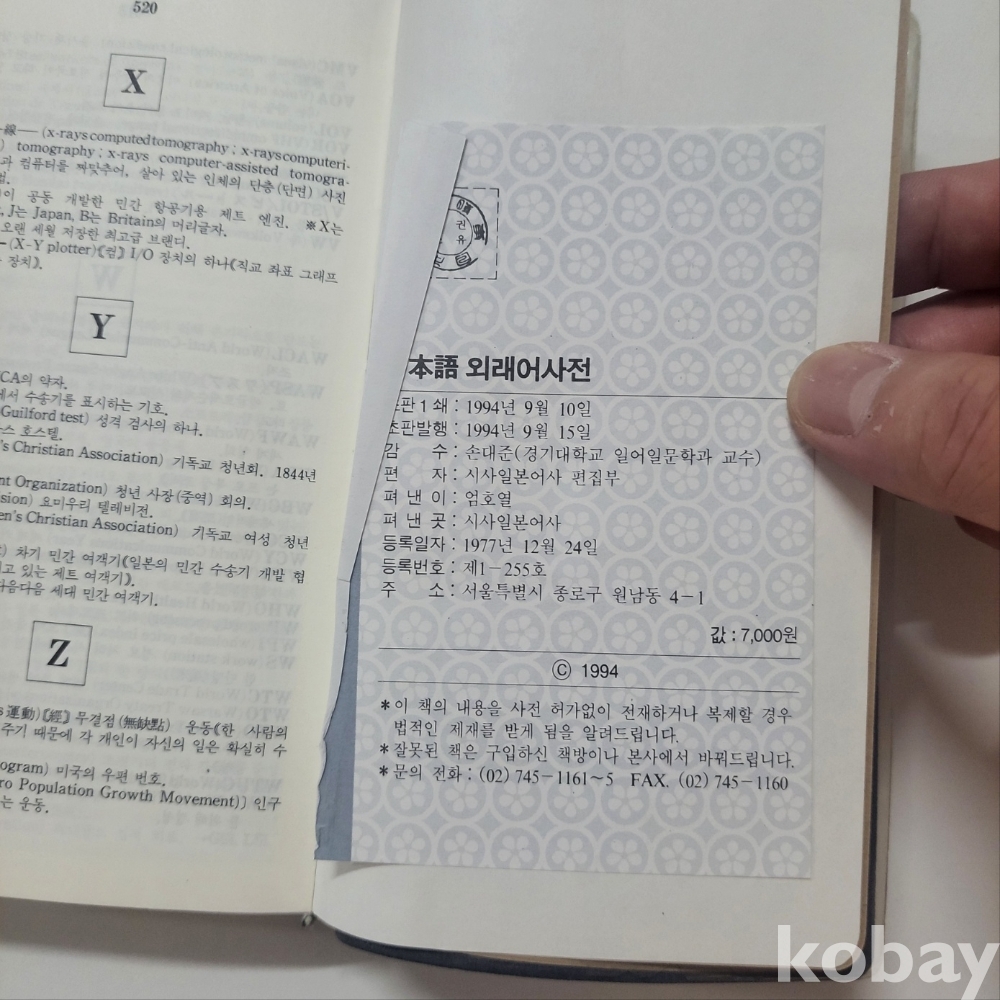 520
X
線— (x-rays computed tomography ; x-rays computeri-
) tomography ; x-rays computer-assisted tomogra-
과 컴퓨터를 짜맞추어, 살아 있는 인체의 단층(단면) 사진
법.
이 공동 개발한 민간 항공기용 제트 엔진. ※X는
, J는 Japan, B는 Britain의 머리글자.
오랜 세월 저장한 최고급 브랜디.
—(X-Y plotter)《컴》 I/O 장치의 하나《직교 좌표 그래프
장치》.
Y
CA의 약자.
에서 수송기를 표시하는 기호.
Guilford test) 성격 검사의 하나.
스 호스텔.
's Christian Association) 기독교 청년회. 1844년
nt Organization) 청년 사장(중역) 회의.
sion) 요미우리 텔레비전.
en's Christian Association) 기독교 여성 청년
) 차기 민간 여객기《일본의 민간 수송기 개발 협
고 있는 제트 여객기》.
다음다음 세대 민간 여객기.
Z
s 運動)《經》 무결점(無缺點) 운동《한 사람의
주기 때문에 각 개인이 자신의 일은 확실히 수
ogram) 미국의 우편 번호.
ro Population Growth Movement)〕 인구
는 운동.
本語 외래어사전
초판 1 쇄 : 1994년 9월 10일
초판발행 : 1994년 9월 15일
감 수 : 손대준(경기대학교 일어일문학과 교수)
편 자 : 시사일본어사 편집부
펴 낸 이 : 엄호열
펴 낸 곳 : 시사일본어사
등록일자 : 1977년 12월 24일
등록번호 : 제1-255호
주 소 : 서울특별시 종로구 원남동 4-1
값 : 7,000원
ⓒ 1994
*이 책의 내용을 사전 허가없이 전재하거나 복제할 경우
법적인 제재를 받게 됨을 알려드립니다.
*잘못된 책은 구입하신 책방이나 본사에서 바꿔드립니다.
*문의 전화 : (02) 745-1161~5 FAX. (02) 745-1160
kobay